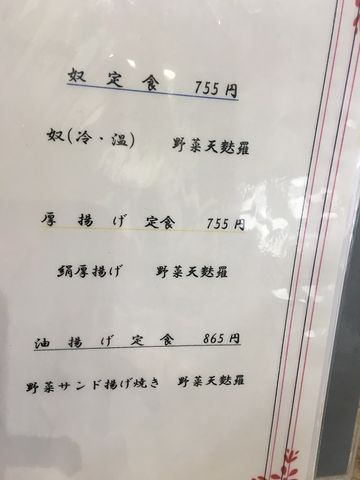 奴定食 755円
奴(冷・温) 野菜天麩羅
厚揚げ定食 755円
絹厚揚げ 野菜天麩羅
油揚げ定食 865円
野菜サンド揚げ焼き 野菜天麩羅